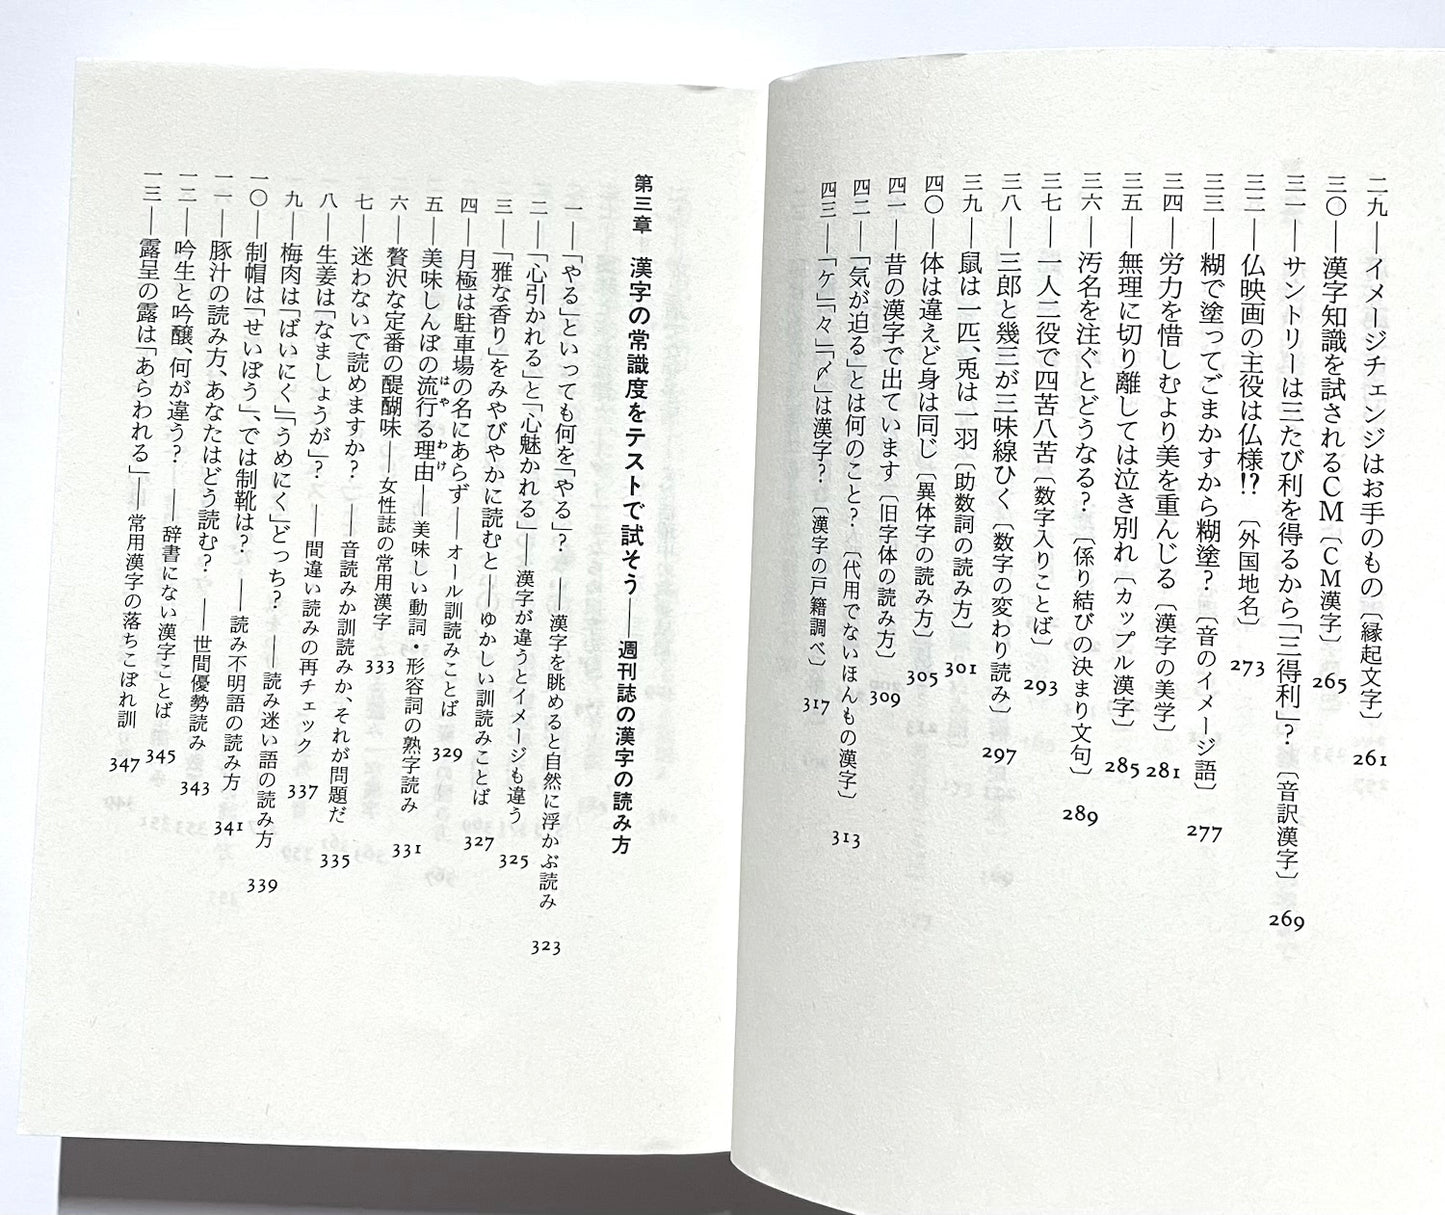 二九──イメージチェンジはお手のもの〔縁起文字〕 261
三〇──漢字知識を試されるCM〔CM漢字〕 265
三一──サントリーは三たび利を得るから「三得利」?〔音訳漢字〕 269
三二──仏映画の主役は仏様!?〔外国地名〕 273
三三──糊で塗ってごまかすから糊塗?〔音のイメージ語〕 277
三四──労力を惜しむより美を重んじる〔漢字の美学〕 281
三五──無理に切り離しては泣き別れ〔カップル漢字〕 285
三六──汚名を注ぐとどうなる?〔係り結びの決まり文句〕 289
三七──一人二役で四苦八苦〔数字入りことば〕 293
三八──三郎と幾三が三味線ひく〔数字の変わり読み〕 297
三九──鼠は一匹、兎は一羽〔助数詞の読み方〕 301
四〇──体は違えど身は同じ〔異体字の読み方〕 305
四一──昔の漢字で出ています〔旧字体の読み方〕 309
四二──「気が迫る」とは何のこと?〔代用でないほんもの漢字〕 313
四三──「ケ」「々」「〆」は漢字?〔漢字の戸籍調べ〕 317
第三章 漢字の常識度をテストで試そう──週刊誌の漢字の読み方
一──「やる」といっても何を「やる」?──漢字を眺めると自然に浮かぶ読み 323
二──「心引かれる」と「心魅かれる」──漢字が違うとイメージも違う 325
三──「雅な香り」をみやびやかに読むと──ゆかしい訓読みことば 327
四──月極は駐車場の名にあらず──オール訓読みことば 329
五──美味しんぼの流行る理由──美味しい動詞・形容詞の熟字読み 331
はや わけ
六──贅沢な定番の醍醐味──女性誌の常用漢字 333
七──迷わないで読めますか?──音読みか訓読みか、それが問題だ 335
八──生姜は「なましょうが」?──間違い読みの再チェック 337
九──梅肉は「ばいにく」「うめにく」どっち?──読み迷い語の読み方 339
一〇──制帽は「せいぼう」、では制靴は?──読み不明語の読み方 341
一一──豚汁の読み方、あなたはどう読む?──世間優勢読み 343
一二──吟生と吟醸、何が違う?──辞書にない漢字ことば 345
一三──露呈の露は「あらわれる」──常用漢字の落ちこぼれ訓 347